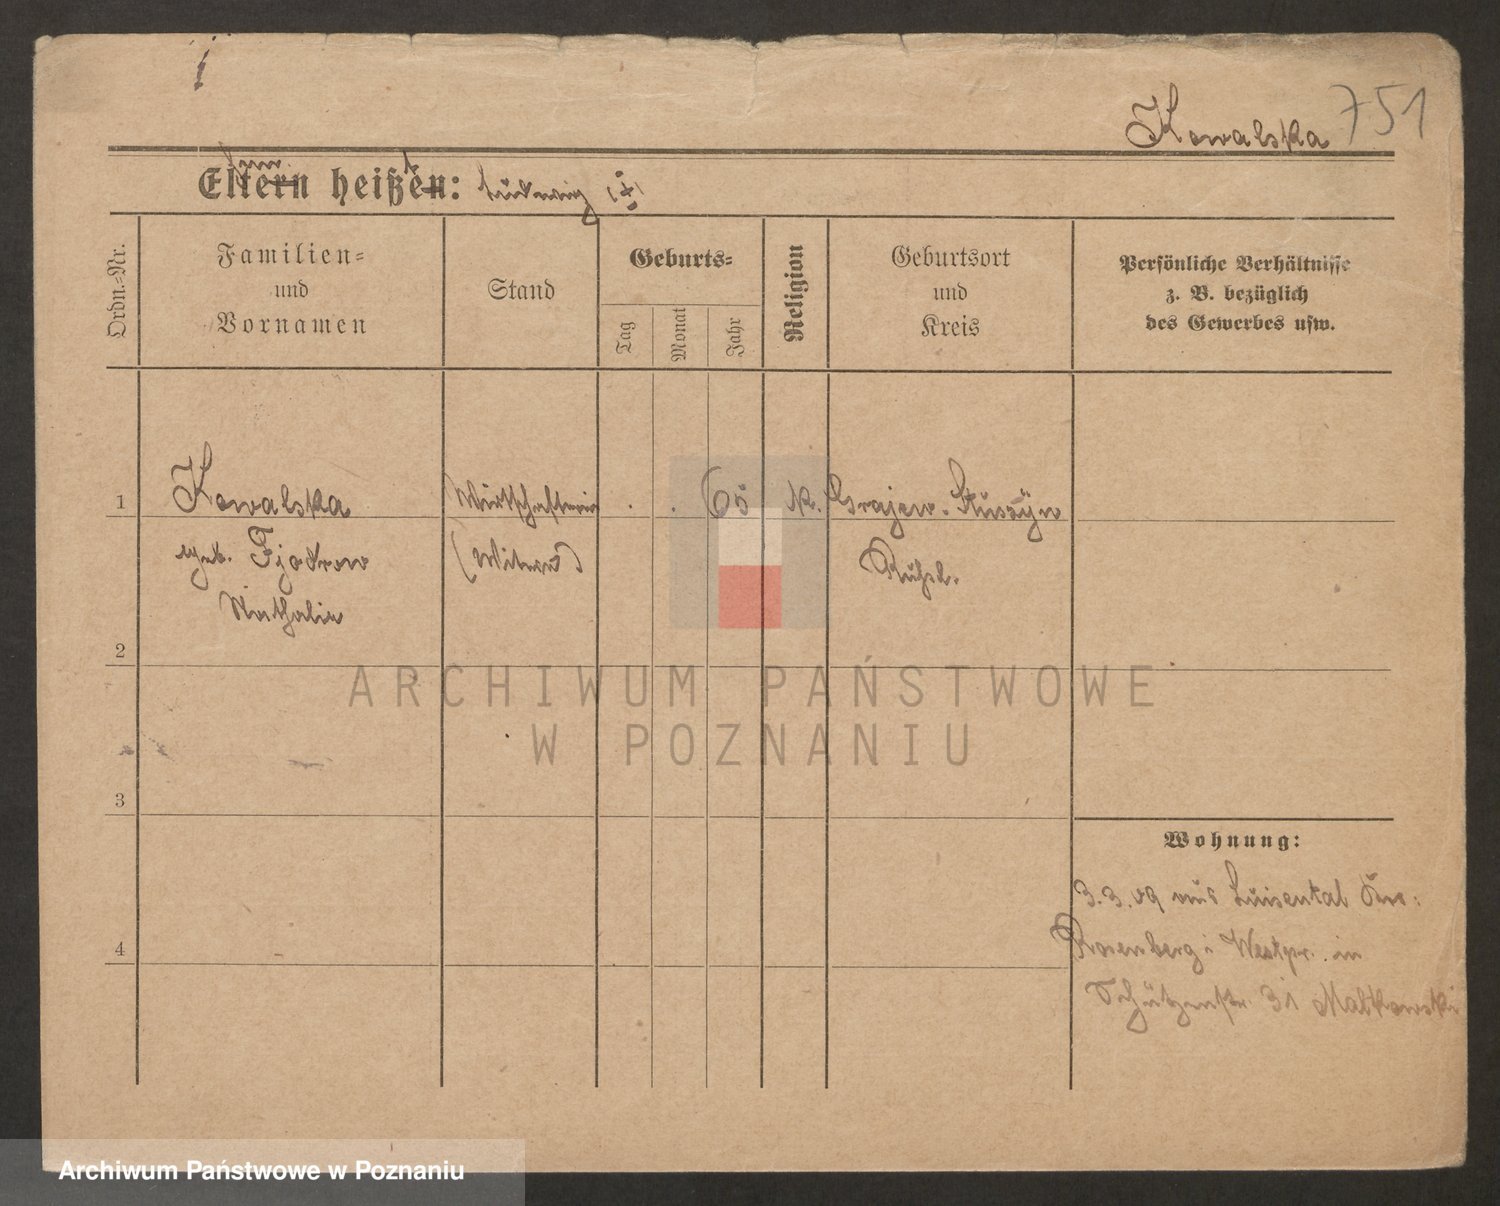 Kowalska 751
Eltern heißen: Ludwig (†)
Ordn.=Nr.
Familien=
und
Vornamen
Stand
Geburts=
Tag
Monat
Jahr
Religion
Geburtsort
und
Kreis
Persönliche Verhältnisse
z. B. bezüglich
des Gewerbes usw.
1 Kowalska Wirtschafterin . . 65 k. Grajew.
geb. Fjodrow (Witwe) Rußl.
Nathalie
2
ARCHIWUM PAŃSTWOWE
W POZNANIU
3
Wohnung:
3.3.09 aus Luisental Krs.
4 Rosenberg i Westpr. in
Schützenstr. 31 Malkowski
Archiwum Państwowe w Poznaniu